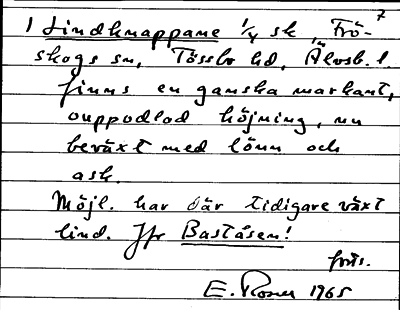 7
I Lindknappane 1/4 sk, Frö-
skogs sn, Tössbo hd, Älvsb. l.
finns en ganska markant,
ouppodlad höjning, nu
beväxt med lönn och
ask.
Möjl. har där tidigare växt
lind. Jfr Baståsen!
forts.
E. Rosen 1965